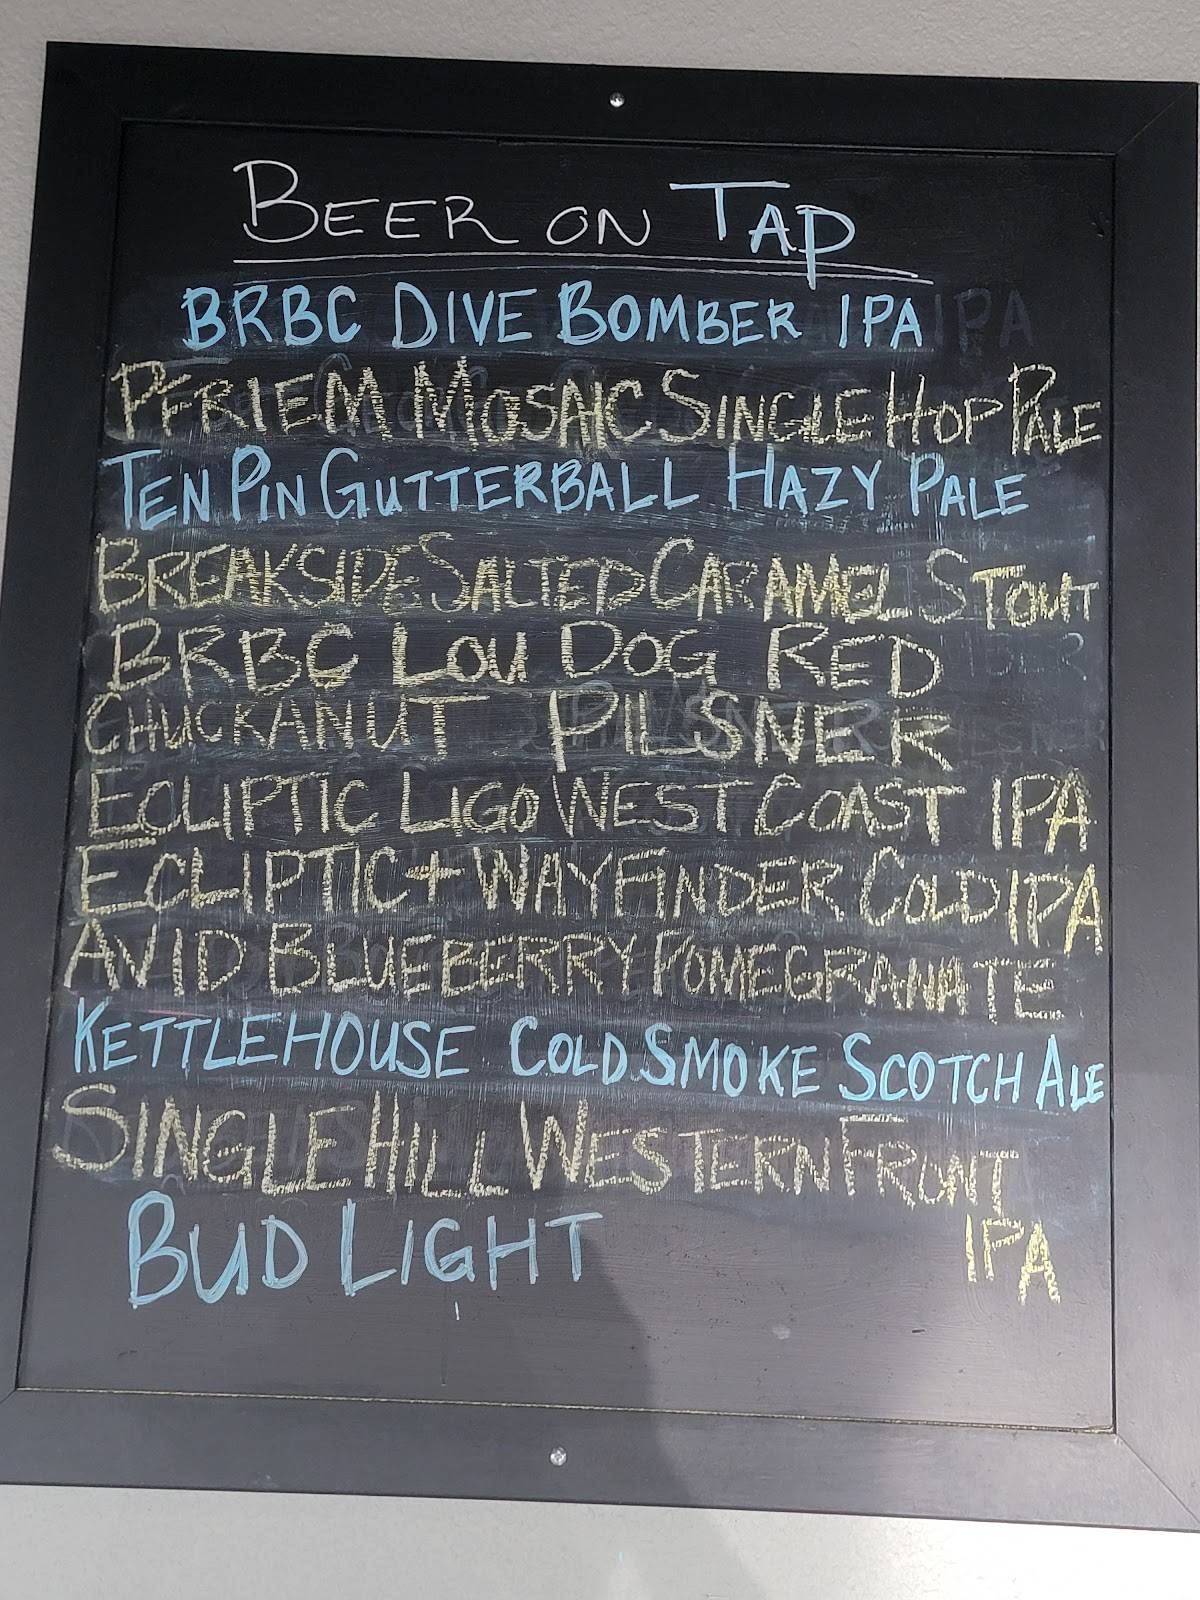 BEER ON TAP
BRBC DIVE BOMBER IPA
PFRIEM MOSAIC SINGLE HOP PALE
TEN PIN GUTTERBALL HAZY PALE
BREAKSIDE SALTED CARAMEL STOUT
BRBC LOU DOG RED
CHUCKANUT PILSNER
ECLIPTIC LIGO WEST COAST IPA
ECLIPTIC + WAYFINDER COLD IPA
AVID BLUEBERRY POMEGRANATE
KETTLEHOUSE COLD SMOKE SCOTCH ALE
SINGLE HILL WESTERN FRONT
IPA
BUD LIGHT